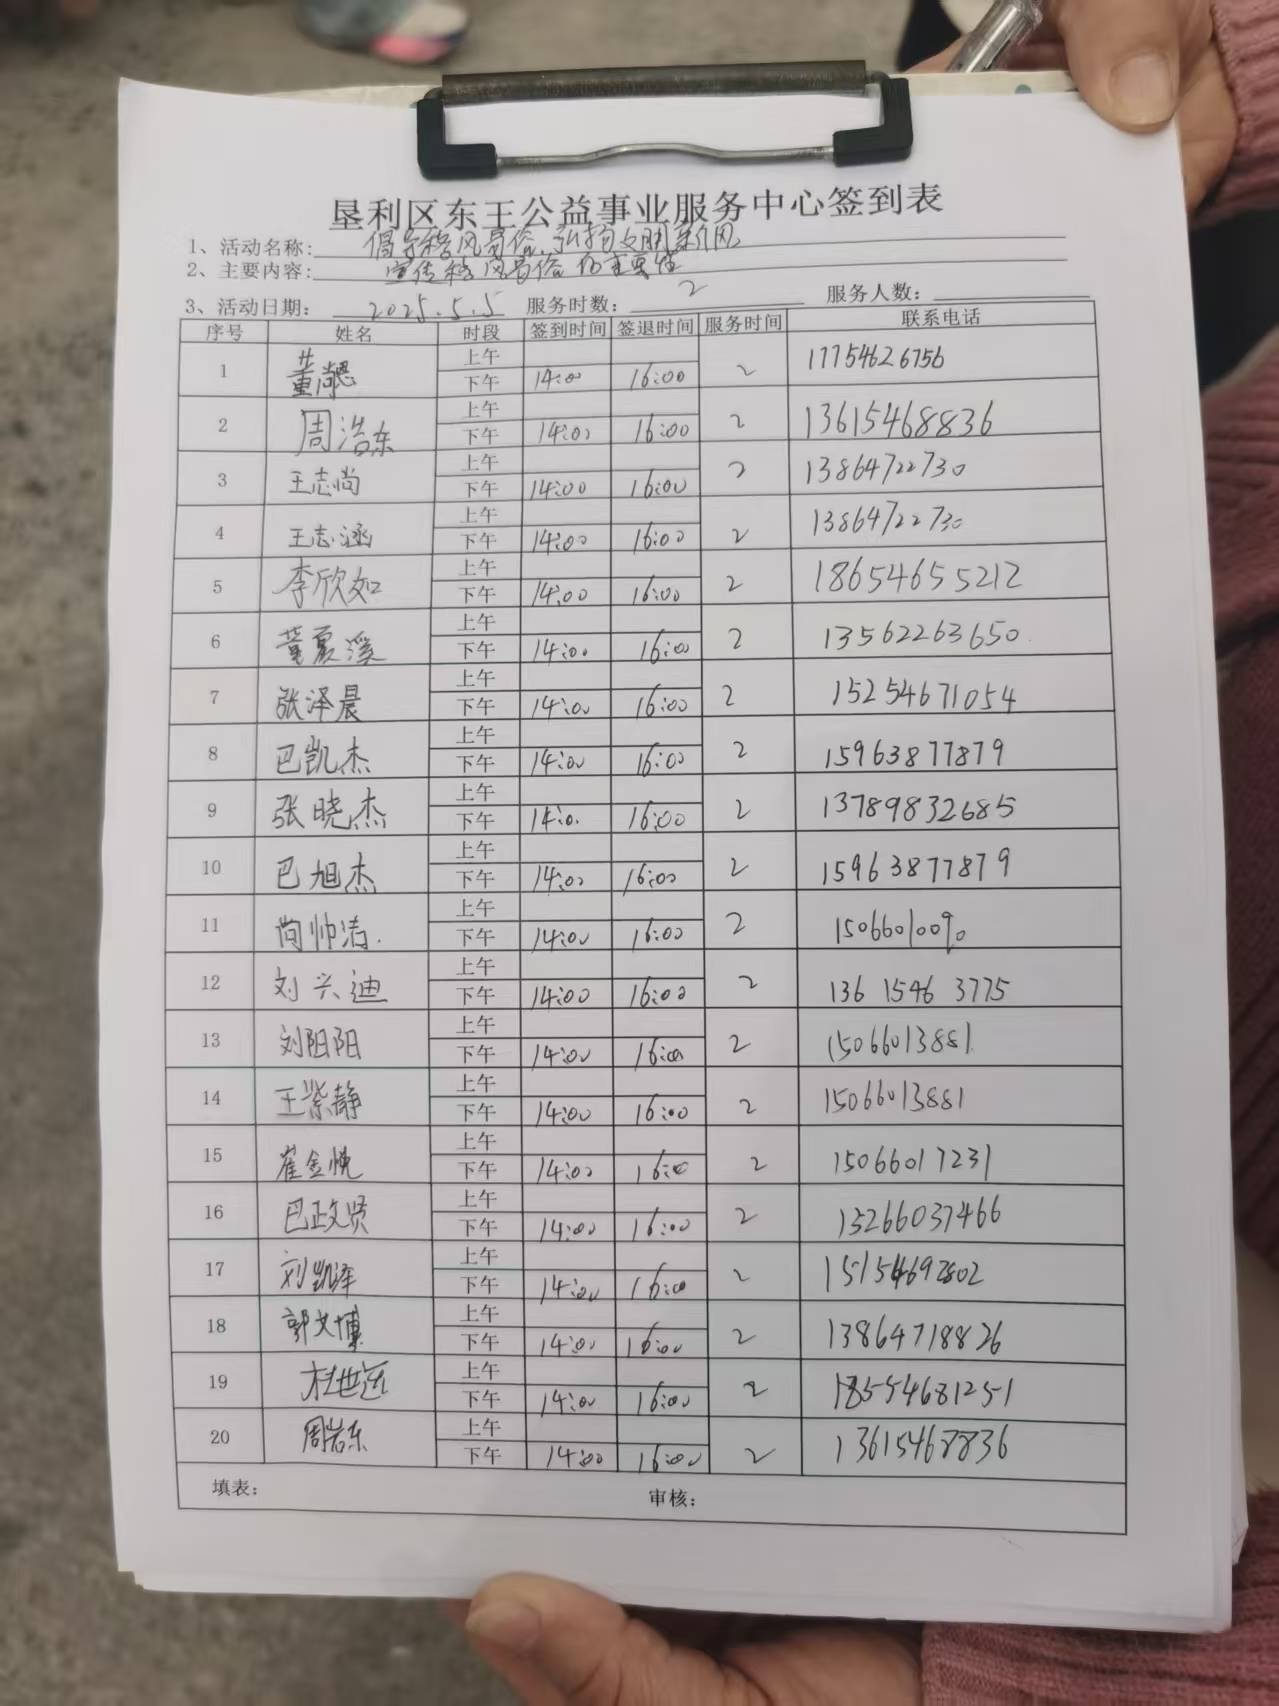 垦利区东王公益事业服务中心签到表
1、活动名称: 倡导移风易俗,弘扬文明新风
2、主要内容: 宣传移风易俗的重要性
3、活动日期: 2025.5.5 服务时数: 2 服务人数:
序号 姓名 时段 签到时间 签退时间 服务时间 联系电话
1 上午
下午 14:00 16:00 2 17754626756
2 周浩东 上午
下午 14:00 16:00 2 13615468836
3 王志尚 上午
下午 14:00 16:00 2 13864722730
4 王志涵 上午
下午 14:00 16:00 2 13864722730
5 李欣如 上午
下午 14:00 16:00 2 18654655212
6 董夏溪 上午
下午 14:00 16:00 2 13562263650
7 张泽晨 上午
下午 14:00 16:00 2 15254671054
8 巴凯杰 上午
下午 14:00 16:00 2 15963877879
9 张晓杰 上午
下午 14:0. 16:00 2 13789832685
10 巴旭杰 上午
下午 14:00 16:00 2 15963877879
11 尚帅洁. 上午
下午 14:00 16:00 2 15066010090
12 刘兴迪 上午
下午 14:00 16:00 2 136 1546 3775
13 刘阳阳 上午
下午 14:00 16:00 2 15066013881
14 王紫静 上午
下午 14:00 16:00 2 15066013881
15 崔金悦 上午
下午 14:00 16:00 2 15066017231
16 巴政贤 上午
下午 14:00 16:00 2 15266037466
17 刘凯泽 上午
下午 14:00 16:00 2 15154692802
18 郭文博 上午
下午 14:00 16:00 2 13864718826
19 杜世远 上午
下午 14:00 16:00 2 18554681251
20 周岩东 上午
下午 14:00 16:00 2 13615468836
填表: 审核: